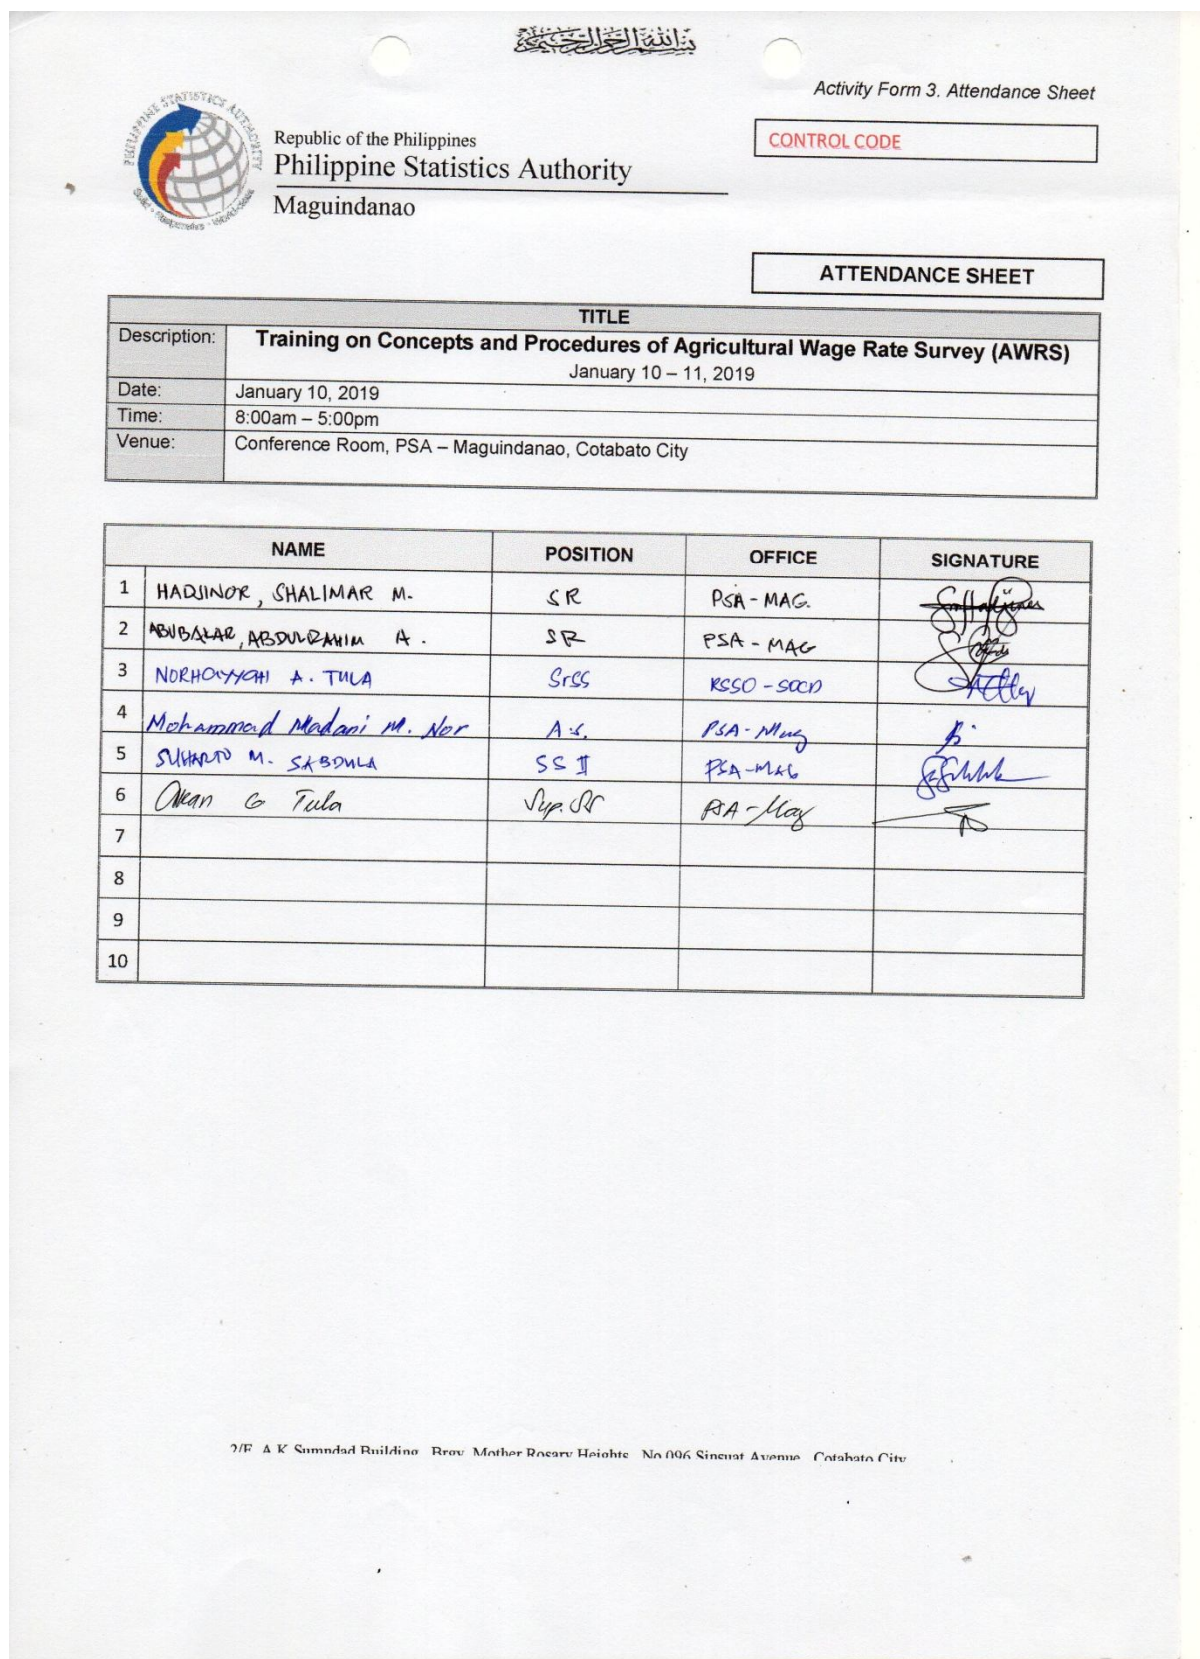 بسم الله الرحمن الرحيم
Activity Form 3. Attendance Sheet
CONTROL CODE
PHILIPPINE STATISTICS AUTHORITY
Republic of the Philippines
Philippine Statistics Authority
Maguindanao
ATTENDANCE SHEET
TITLE
Description: Training on Concepts and Procedures of Agricultural Wage Rate Survey (AWRS)
January 10 – 11, 2019
Date: January 10, 2019
Time: 8:00am – 5:00pm
Venue: Conference Room, PSA – Maguindanao, Cotabato City
NAME POSITION OFFICE SIGNATURE
1 HADJINOR, SHALIMAR M. SR PSA-MAG.
2 ABUBAKAR, ABDULRAHIM A. SR PSA-MAG
3 A. TULA SrSS RSSO-SOCD
4 Mohammad Madani M. Nor A.S. PSA-Mag
5 SUHARTO M. SABDULA SS II PSA-MAG
6 G Tula Sup. SS PSA-Mag
7
8
9
10
2/F A.K Sumndad Building, Brgy. Mother Rosary Heights, No.096 Sinsuat Avenue, Cotabato City